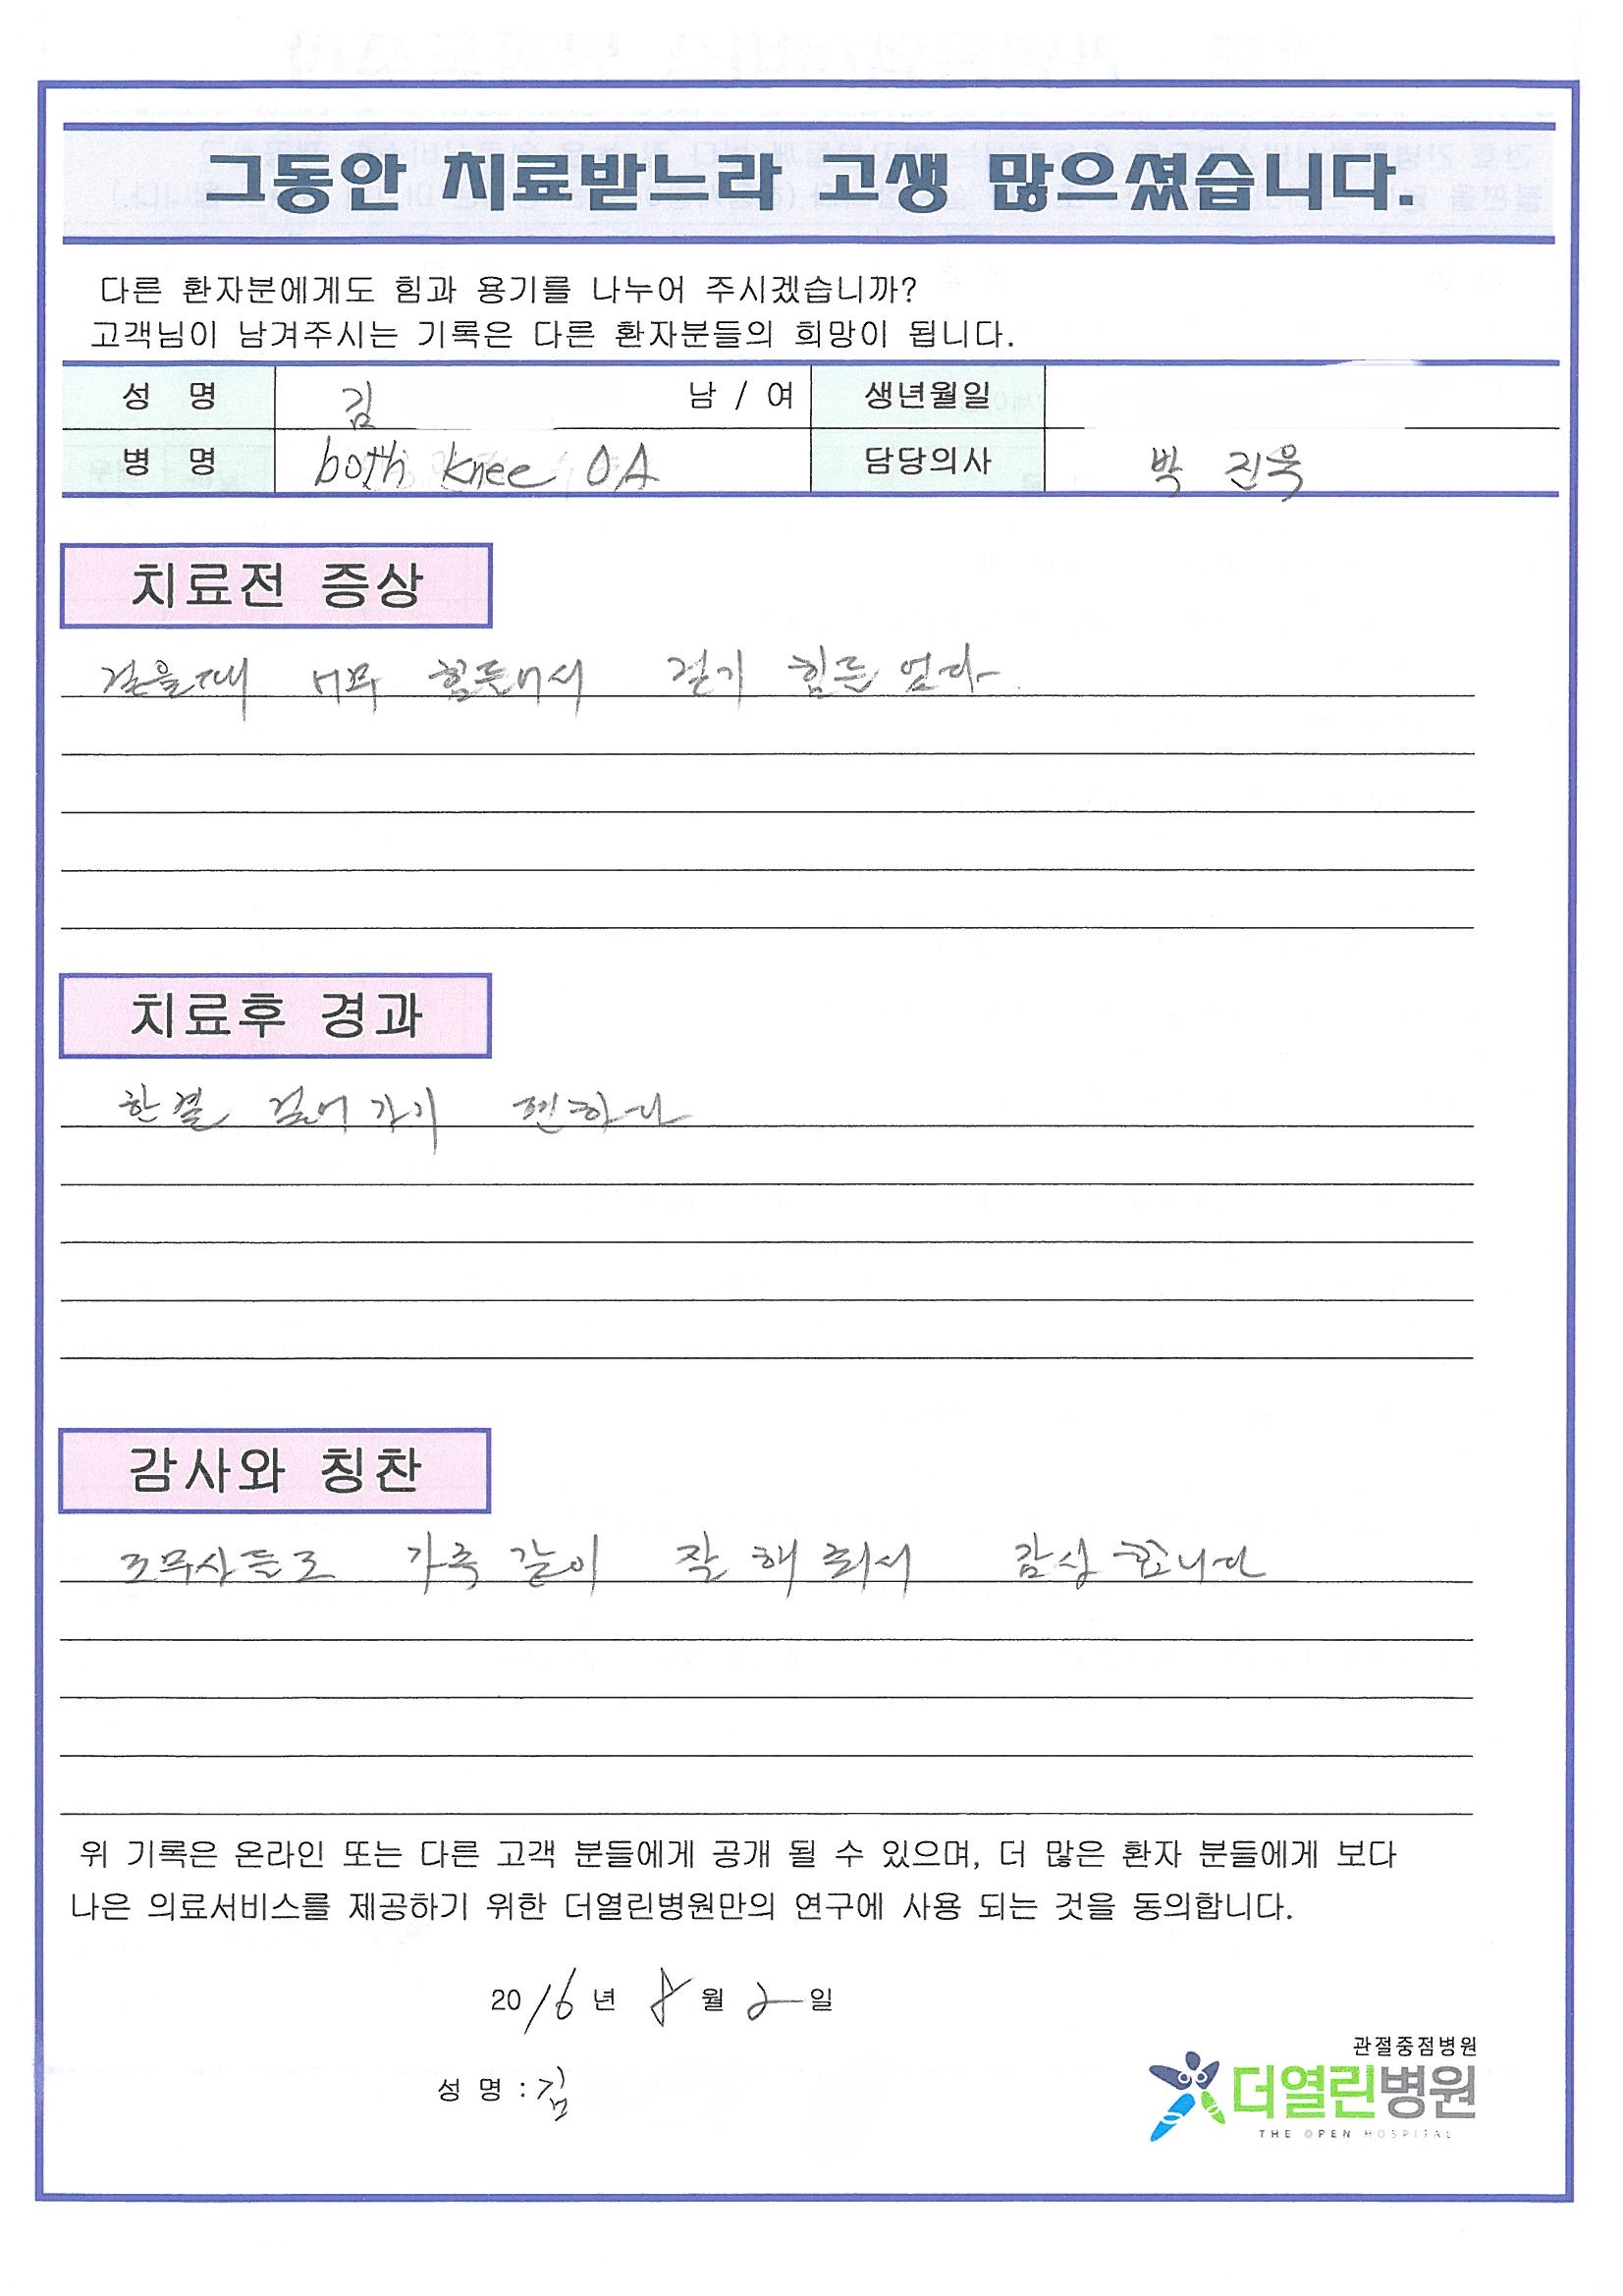 그동안 치료받느라 고생 많으셨습니다.
다른 환자분에게도 힘과 용기를 나누어 주시겠습니까?
고객님이 남겨주시는 기록은 다른 환자분들의 희망이 됩니다.
성 명 김 남 / 여 생년월일
병 명 both knee OA 담당의사 박 진욱
치료전 증상
걸을때 너무 힘들어서 걷기 힘든 었다
치료후 경과
한결 걸어가기 편하다
감사와 칭찬
조무사들도 가족 같이 잘 해 줘서 감상 합니다
위 기록은 온라인 또는 다른 고객 분들에게 공개 될 수 있으며, 더 많은 환자 분들에게 보다
나은 의료서비스를 제공하기 위한 더열린병원만의 연구에 사용 되는 것을 동의합니다.
2016년 8월 2일
성 명 : 김
관절중점병원
더열린병원
THE OPEN HOSPITAL